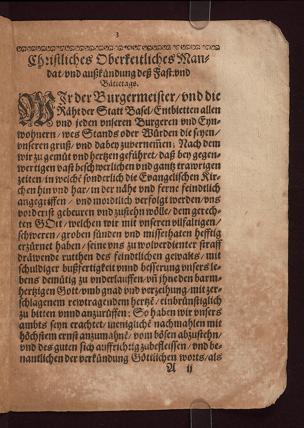 3
Christliches Oberkeitliches Man-
dat/ vnd außkündung deß Fast: vnd
Bättags.
WIr der Burgermeister/ vnd die
Räht der Statt Basel/ Entbietten allen
vnd jeden vnseren Burgeren vnd Eyn-
wohnern/ wes Stands oder Würden die seyen/
vnseren gruß/ vnd dabey zuvernemen: Nach dem
wir zu gemüt vnd hertzen geführet/ daß bey gegen-
wertigen vast beschwerlichen vnd gantz trawrigen
zeiten in welche sonderlich die Evangelischen Kir-
chen hin vnd har/ in der nähe vnd ferne feindtlich
angegriffen/ vnd mordtlich verfolgt werden/ vns
vorderist gebeuren vnd zustehn wölle/ dem gerech-
ten GOtt/ welchen wir mit vnseren vilfaltigen/
schweren/ groben sünden vnd missethaten hefftig
erzürnet haben/ seine vns zu wolverdienter straff
dräwende rutthen des feindtlichen gewalts/ mit
schuldiger bußfertigkeit vnnd besserung vnsers le-
bens demütig zu vnderlauffen/ vñ ihne den barm-
hertzigen Gott/ vmb gnad vnd verzeihung/ mit zer-
schlagenem rewtragendem hertzē/ einbrünstiglich
zu bitten vnnd anzurüffen: So haben wir vnsers
ambts seyn erachtet/ meniglichē nachmahlen mit
höchstem ernst anzumahnē/ vom bösen abzustehn/
vnd des guten sich auffrichtig zubefleissen/ vnd be-
nantlichen der verkündung Göttlichen worts/ als
A ij